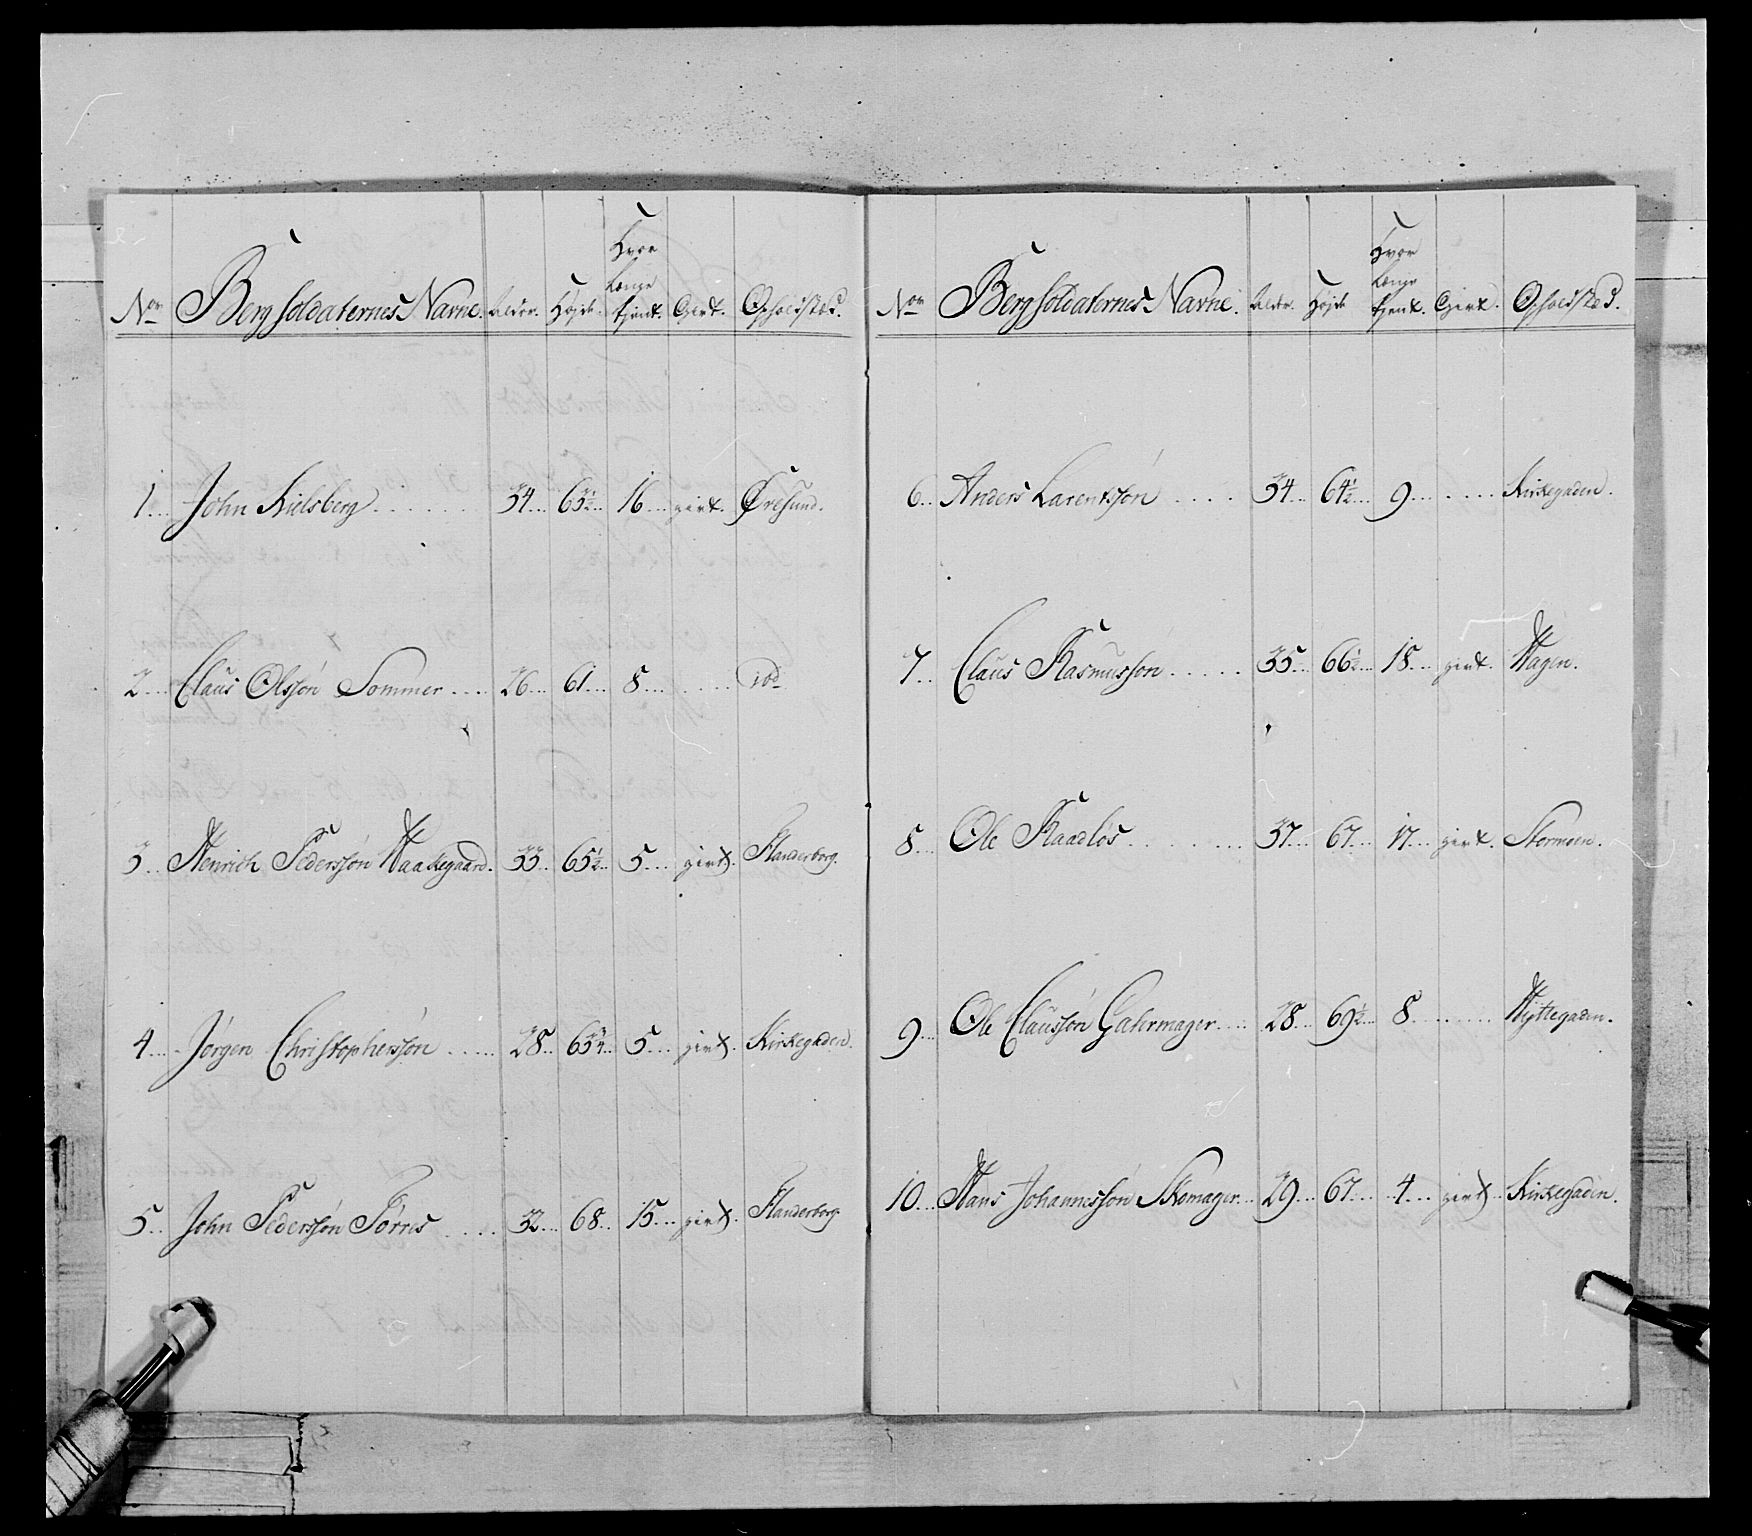 Nor Bergsoldaternes Navne. Alder. Højde. Hvor Længe tjent. Givt. Opholdsted.
1. John Kielsberg 34 63½ 16 givt. Øresund.
2. Claus Olssøn Sommer 26 61 8
3. Henrich Pederssøn Haakegaard. 33 65½ 5 givt. Flanderborg.
4. Jørgen Christopherssøn 28 63¾ 5 givt. Kirkegaden.
5. John Pederssøn Tørres 32 68 15 givt. Flanderborg
Nor Bergsoldaternes Navne. Alder. Højde Hvor Længe tjent. Givt. Opholdsted.
6. Anders Larentssøn 34 64½ 9 Kirkegaden.
7. Claus Rasmussøn 35 66½ 18 givt. Hagen.
8. Ole Raadlos 37 67 17 givt. Stormoen.
9. Ole Claussøn Gatermager 28 69½ 8 Hyttegaden.
10. Hans Johannessøn Skomager 29 67 4 givt. Kirkegaden.